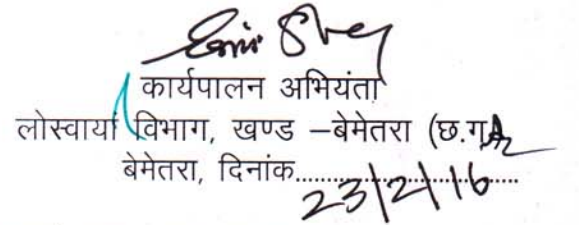 कार्यपालन अभियंता
लोस्वायां विभाग, खण्ड –बेमेतरा (छ.ग.
बेमेतरा, दिनांक....................
23/2/16